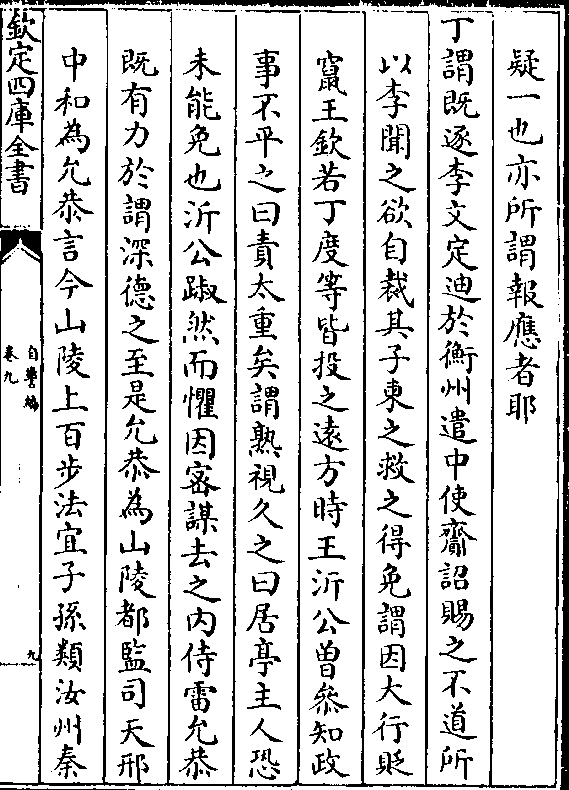 疑一也亦所謂報應者耶
丁謂既逐李文定迪於衡州遣中使齎詔賜之不道所
以李聞之欲自裁其子柬之救之得免謂因大行貶
竄王欽若丁度等皆投之遠方時王沂公曽參知政
事不平之曰責太重矣謂熟視久之曰居亭主人恐
未能免也沂公踧然而懼因宻謀去之内侍雷允恭
既有力於謂深德之至是允恭為山陵都監司天邢
中和為允恭言今山陵上百步法宜子孫類汝州秦
欽定四庫全書
自警編
卷九
九